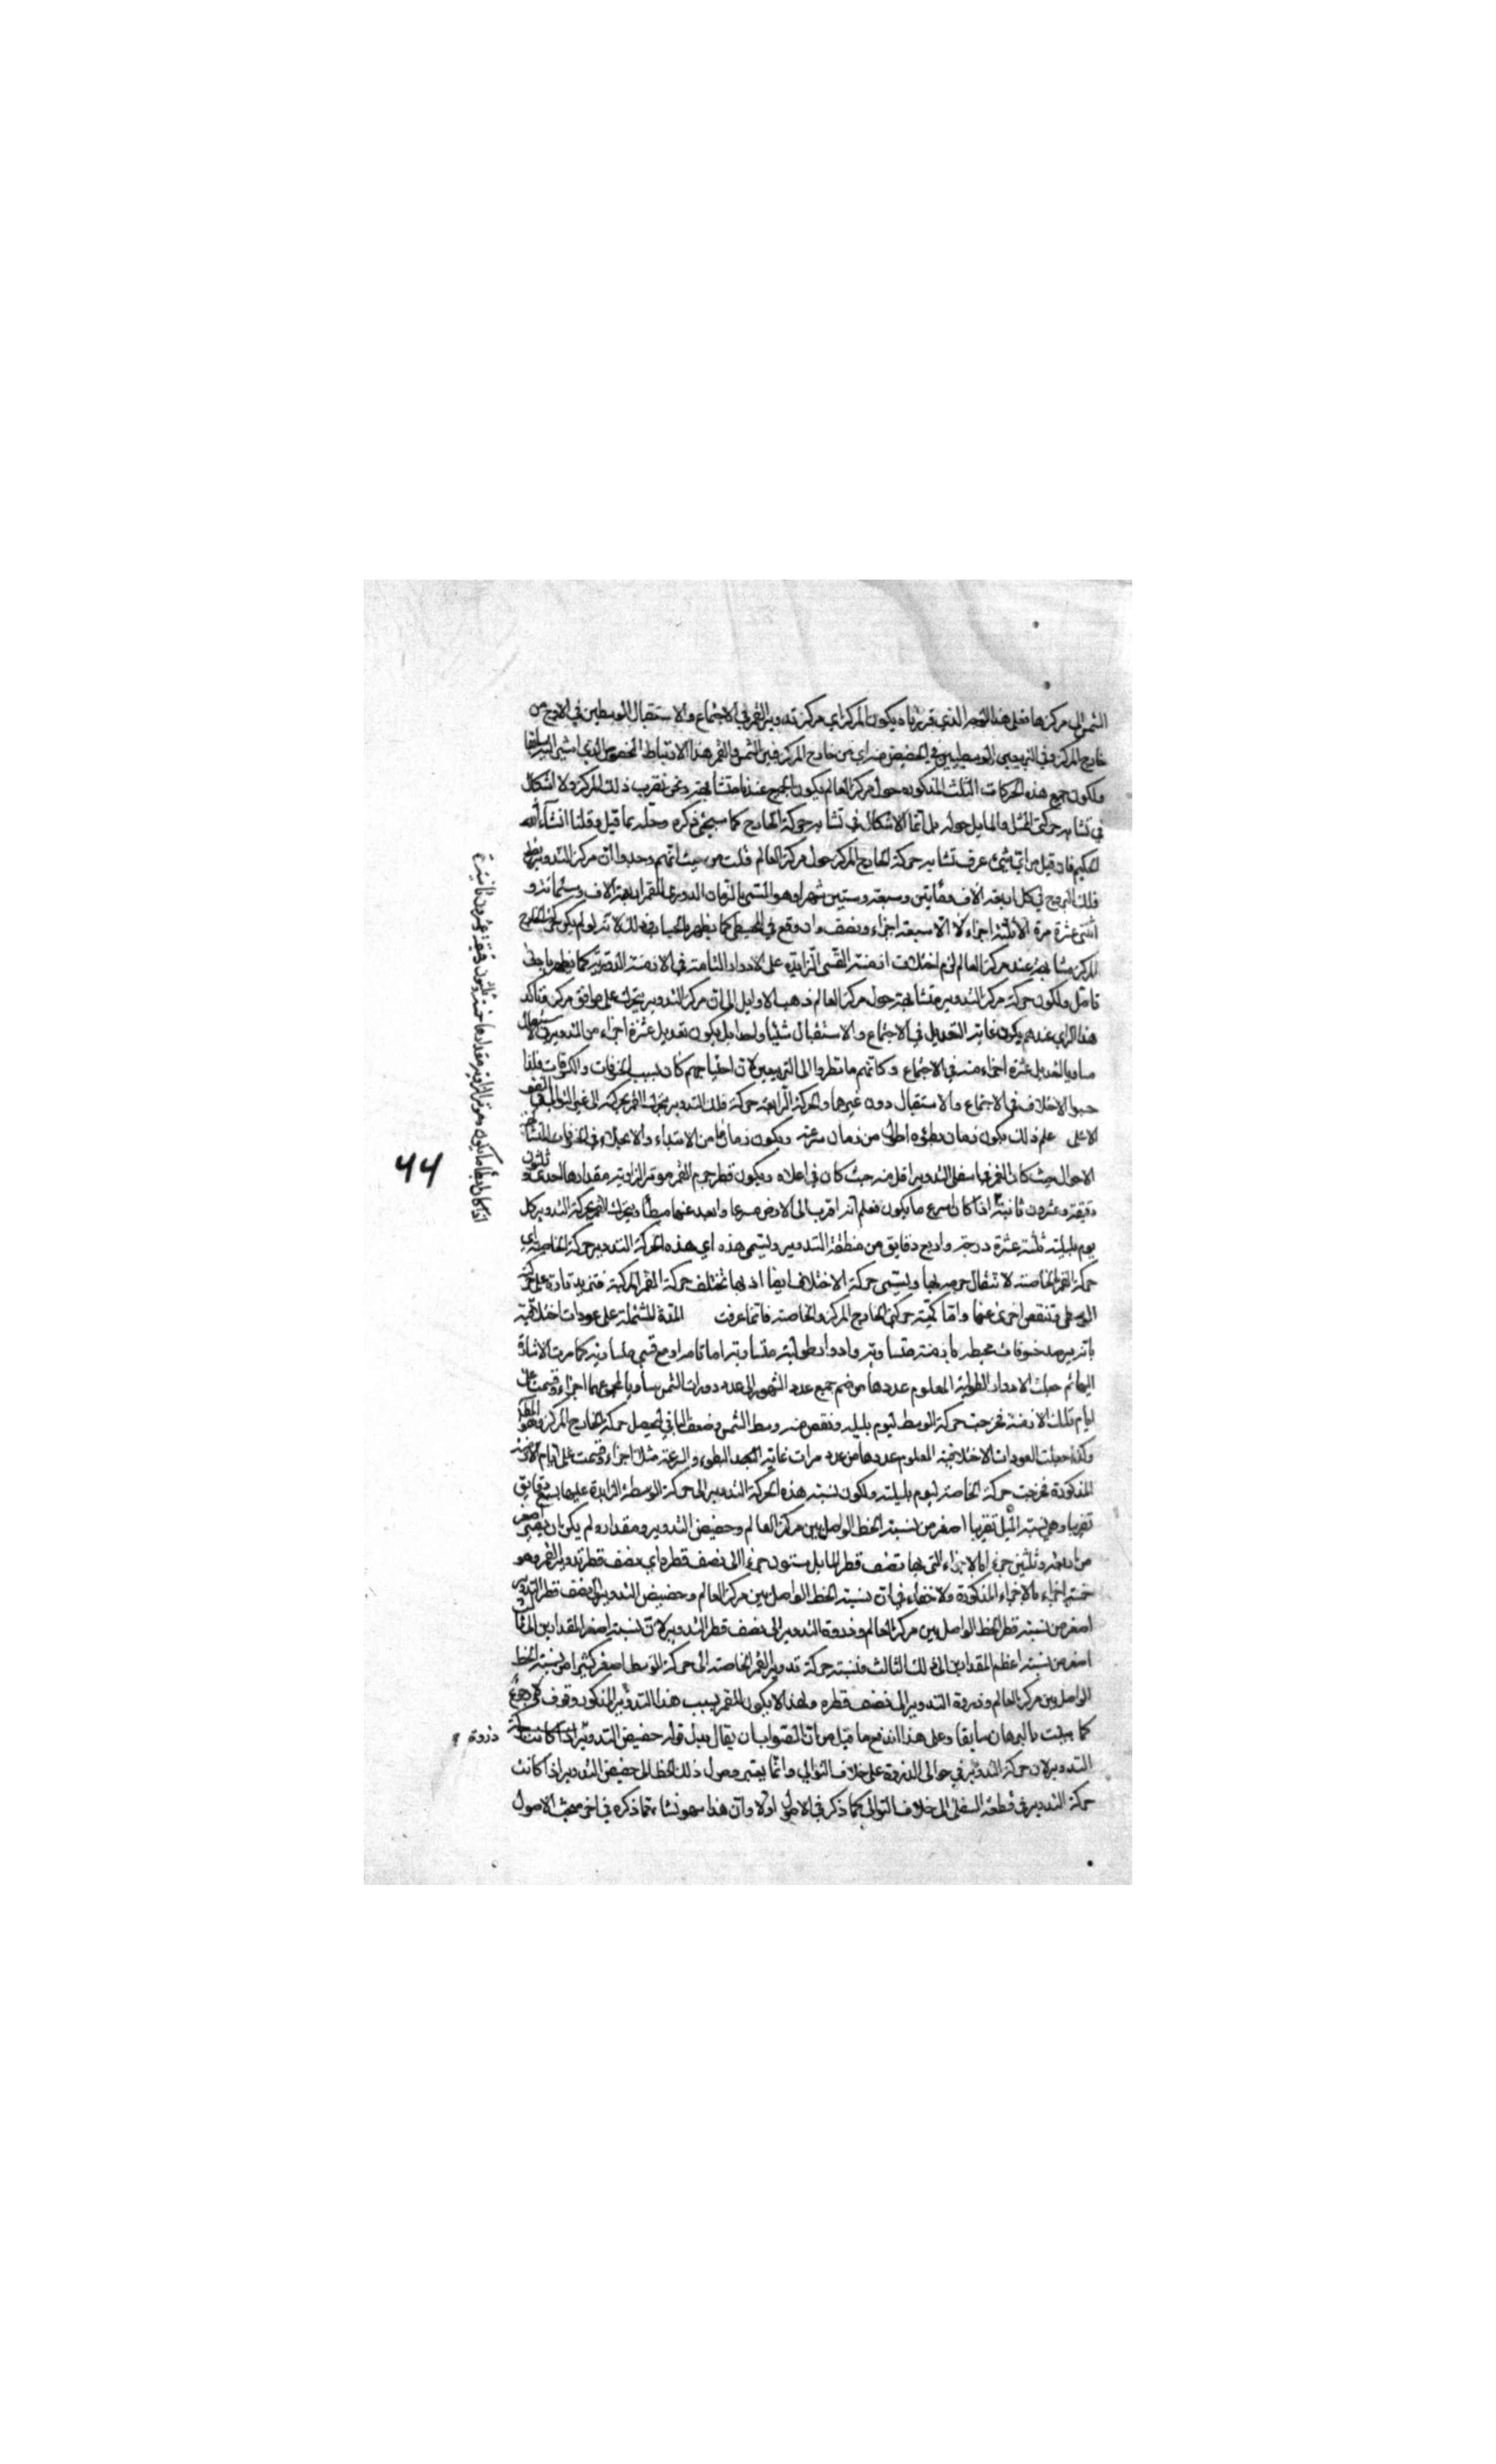 الشمس الى مركزها فعلى هذا الوجه الذي قررناه يكون المركز اي مركز تدوير القمر في الاجتماع والاستقبال الوسطيين في الاوج من
خارج المركز وفي التربيعين الوسطيين في الحضيض منه اي من خارج المركز فبين الشمس والقمر هذا الارتباط المخصوص الذي اشير اليه سابقا
ولكون جميع هذه الحركات الثلث المذكورة حول مركز العالم يكون الجميع عنده متشابهة ونحن نقرب ذلك المركز ولا اشكال
في تشابه حركتي الممثل والمايل حوله بل انما الاشكال في تشابه حركة الخارج كما سيجيء ذكره وحله بما قيل وقلنا انشاء الله
الحكيم فان قيل من اي شيء عرف تشابه حركة الخارج المركز حول مركز العالم قلت من حيث انهم وجدوا ان مركز التدوير
فلك البروج في كل اربعة الاف ومايتين وسبعة وستين شهرا وهو المسمى بالزمان الدوري للقمر اربعة الاف وستمائة و
اثنتى عشرة مرة الا سبعة اجزاء ونصف وان وقع في المجسطي كما يظهر بالحساب وذلك لانه لو لم يكن حركة الخارج
المركز متشابهة عند مركز العالم لزم اختلاف ازمنة القسي الزايدة على الادوار التامة في الازمنة الدورية كما يظهر بادنى
تامل ولكون حركة مركز التدوير متشابهة حول مركز العالم ذهب الاوايل الى ان مركز التدوير يتحرك على موافق مركز وتاكد
هذا الراي عندهم بكون غاية التعديل في الاجتماع والاستقبال شيئا واحدا بل يكون تعديل عشرة اجزاء من التدوير في الاستقبال
مساويا لتعديل عشرة اجزاء منه في الاجتماع وكانهم ما نظروا الى التربيعين لان احتياجهم كان بسبب الخسوفات والكسوفات فلهذا
حسبوا الاختلاف في الاجتماع والاستقبال دون غيرها والحركة الرابعة حركة فلك التدوير يتحرك القمر بحركته الى غير التوالي في النصف
الاعلى علم ذلك بكون زمان بطؤه اطول من زمان سرعته وبكون زمان ما من الابتداء والانجلاء في الخسوفات المتشابهة
الاحوال حيث كان القمر فيها اسفل التدوير اقل منه حيث كان في اعلاه وبكون قطر جرم القمر موتر الزاوية مقدارها احدى وثلثون
دقيقة وعشرون ثانية اذا كان اسرع ما يكون فعلم انه اقرب الى الارض مسرعا وابعد عنها مبطأ ويتحرك القمر بحركة التدوير كل
يوم بليلته ثلثة عشرة درجة واربع دقايق من منطقة التدوير وتسمى هذه اي هذه الحركة التدوير حركة الخاصة اي
حركة القمر الخاصة لانتقال جرمه بها ويسمى حركة الاختلاف ايضا اذ بها تختلف حركة القمر المركبة فتزيد تارة على حركة
الوسطى وتنقص اخرى عنها واما كمية حركتي الخارج المركز والخاصة فانما عرفت المدة المشتملة على عودات اختلافية
اليها ثم جعلت الادوار الطولية المعلوم عددها من ضم جميع عدد الشهور الى عدد دورات الشمس مساويا لمجموعهما اجزاء وقسمت على
ايام تلك الازمنة فخرجت حركة الوسط ليوم بليله ونقص منه وسط الشمس وضعف الباقي ليحصل حركة الخارج المركز وهو المط
وكذا جعلت العودات الاختلافية المعلوم عددها من عدد مرات غايتي البطوء والسرعة مثلا اجزاء وقسمت على ايام الازمنة
المذكورة فخرجت حركة الخاصة ليوم بليلته ولكون نسبة هذه الحركة التدوير الى حركة الوسط الزايدة عليها بسبع دقايق
تقريبا وهي نسبة المثل تقريبا اصغر من نسبة الخط الواصل بين مركز العالم وحضيض التدوير ومقداره لم يكن بان يصير اصغر
من اربعة وثلثين جزءا بالاجزاء التي بها نصف قطر المايل ستون جزءا الى نصف قطره اي نصف قطر تدوير القمر وهو
خمسة اجزاء بالاجزاء المذكورة ولا خفاء في ان نسبة الخط الواصل بين مركز العالم وحضيض التدوير الى نصف قطر التدوير
اصغر من نسبة قطر الخط الواصل بين مركز العالم وذروة التدوير الى نصف قطر التدوير لان نسبة اصغر المقدارين الى ثالث
اصغر من نسبة اعظم المقدارين الى ذلك الثالث فنسبة حركة تدوير القمر الخاصة الى حركة الوسط اصغر كثيرا من نسبة الخط
الواصل بين مركز العالم وذروة التدوير الى نصف قطره ولهذا لا يكون للقمر بسبب هذا التدوير المذكور وقوف ولا رجوع
كما بينت بالبرهان سابقا وعلى هذا اندفع ما قيل من ان الصواب ان يقال بدل قوله حضيض التدوير اذا كانت حركة
ذروة
التدوير لان حركة التدوير في حوالى الذروة على خلاف التوالي وانما يعتبر وصول ذلك الخط الى حضيض التدوير اذا كانت
حركة التدوير في قطعته السفلى الى خلاف التوالي كما ذكر في الاصول اولا وان هذا سهو نشاء مما ذكره في اخر مبحث الاصول
اذا كان ابطأ ما يكون وموتر الزاوية مقدارها خمسة وثلثون دقيقة وعشرون ثانية
44